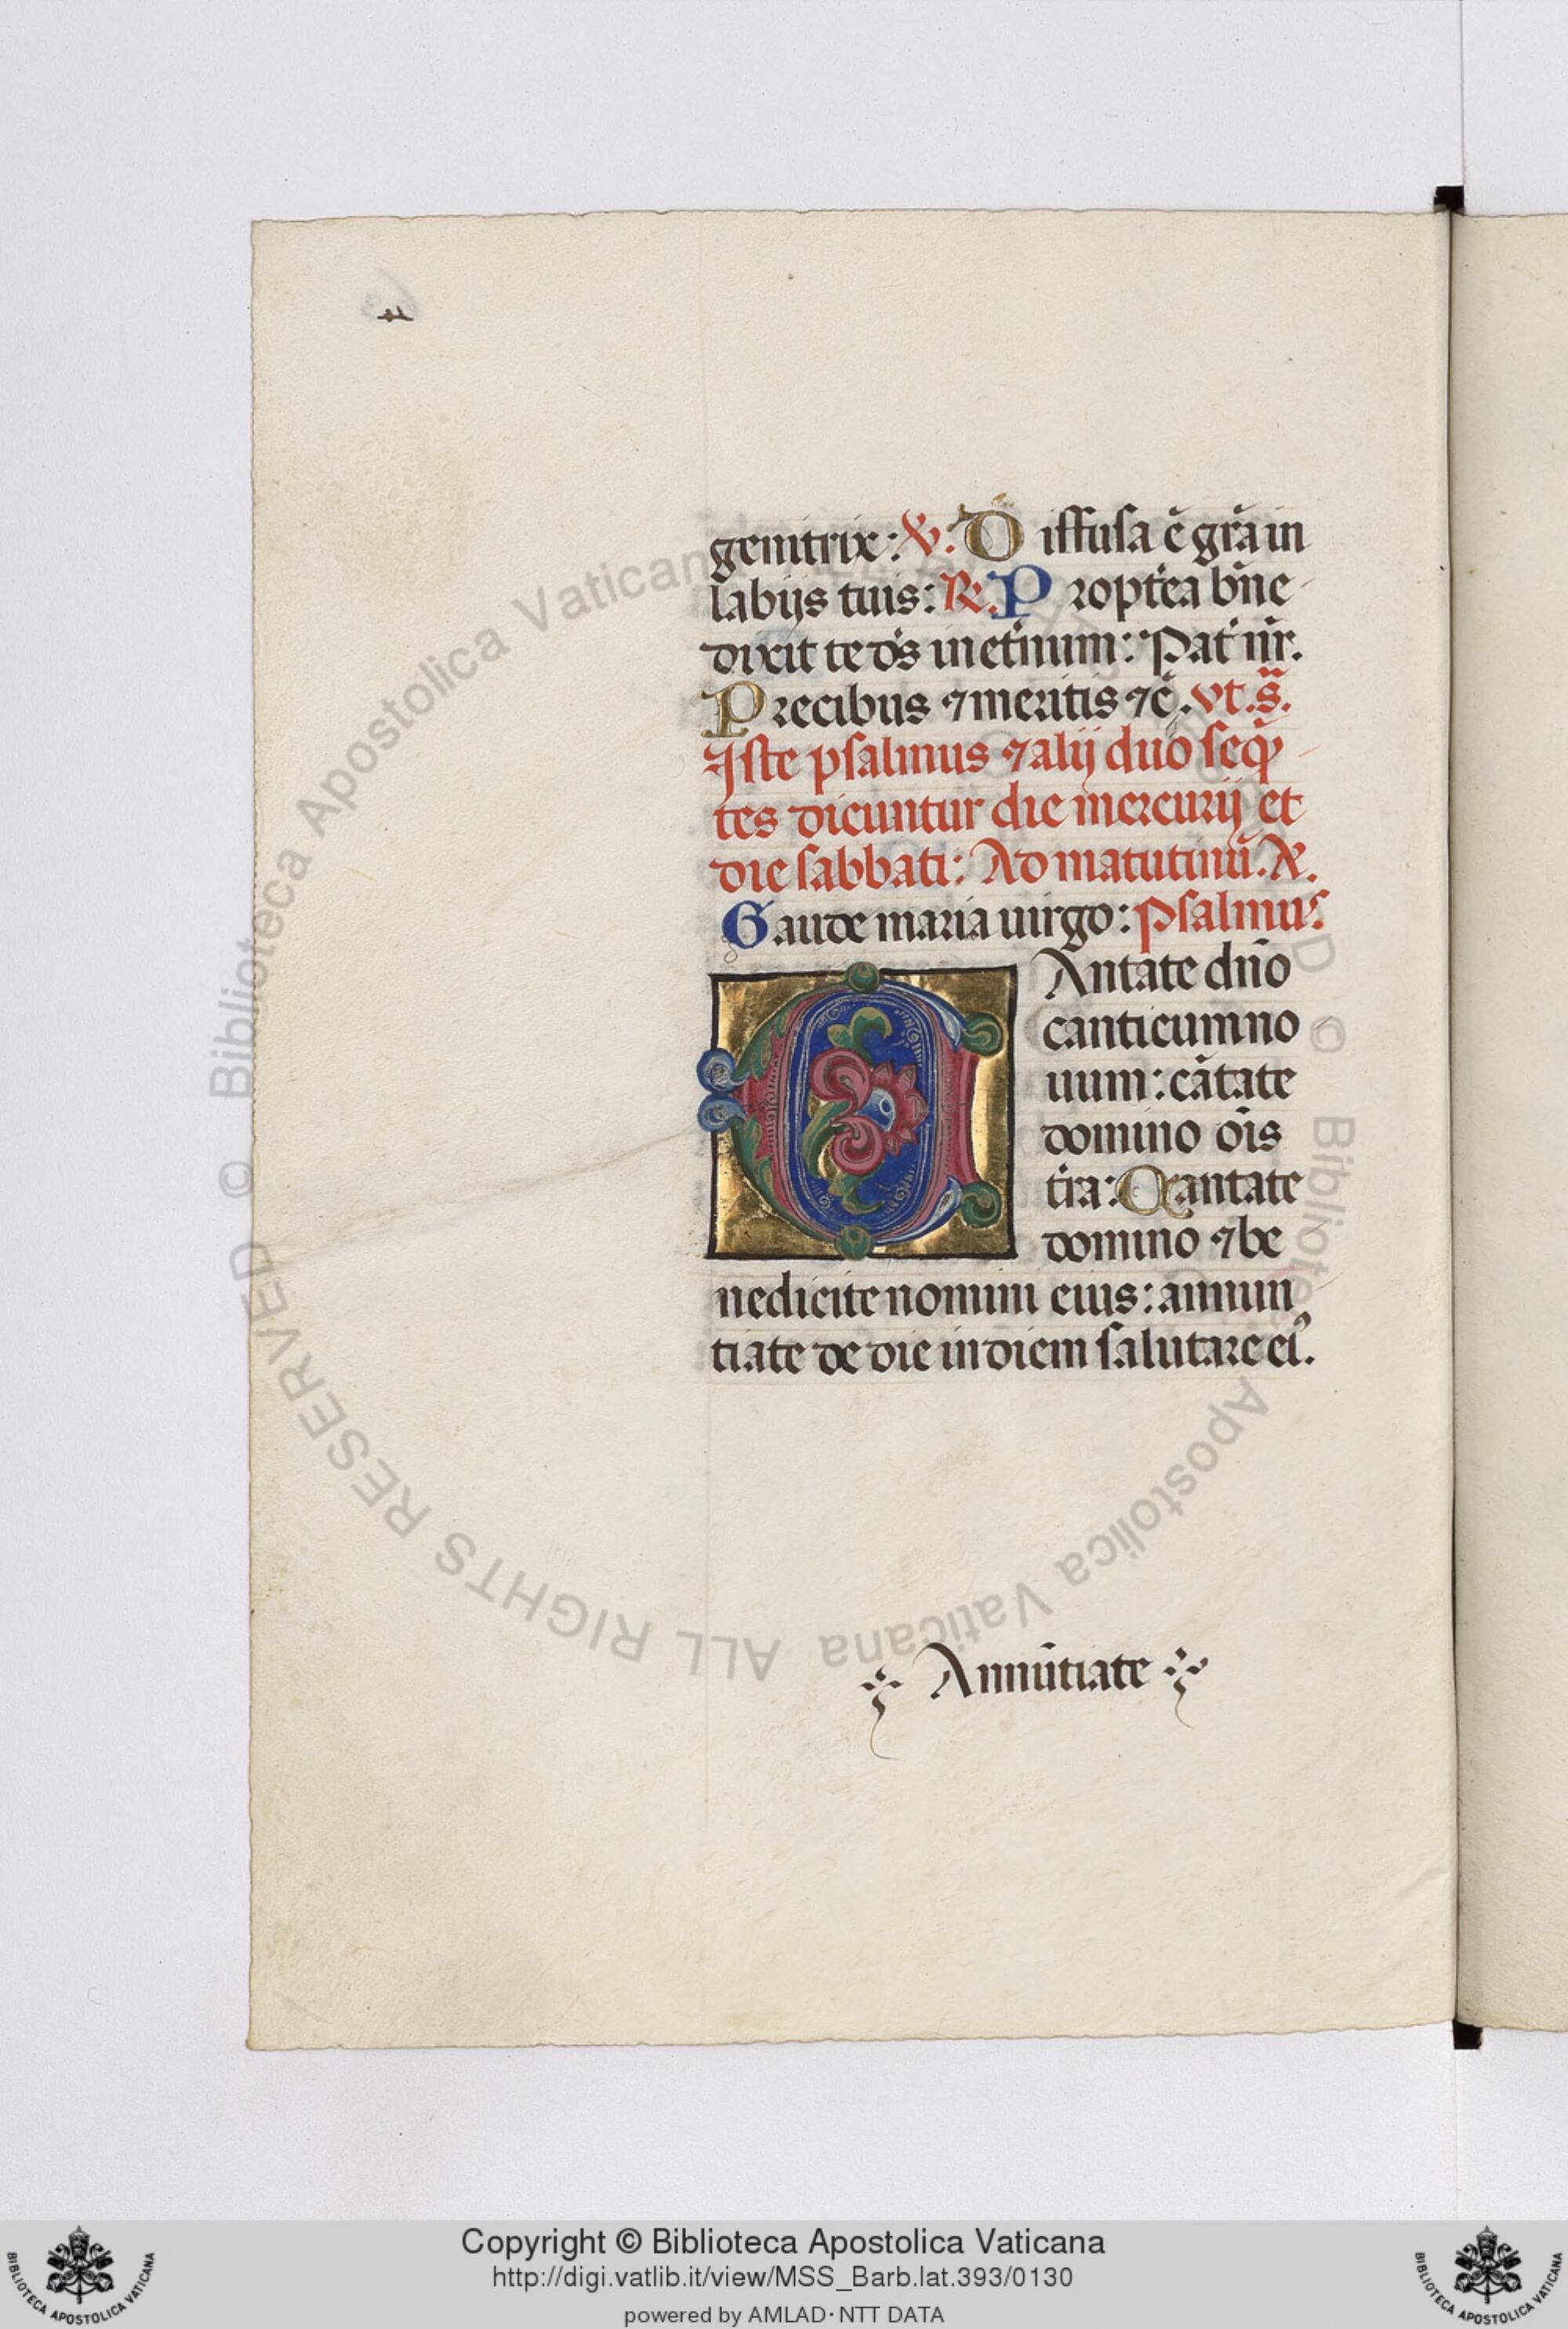 genitrix: ℣. Diffusa ē grā in
labijs tuis: ℞. Propt̄ea bn̄e
dixit te ds̄ in et̄num: Pat̄ nr̄.
Precibus ⁊ meritis ⁊c̄. vt. s̄.
Iste psalmus ⁊ alij duo seq̄
tes dicuntur die mercurij et
die sabbati: Ad matutinū. Añ.
Gaude maria uirgo: Psalmus
CAntate dn̄o
canticum no
uum: cātate
domino ōis
tr̄a: Cantate
domino ⁊ be
nedicite nomini eius: annun
tiate de die in diem salutare eiꝰ.
Annūtiate
© Biblioteca Apostolica Vaticana
© Biblioteca Apostolica Vaticana ALL RIGHTS RESERVED
Copyright © Biblioteca Apostolica Vaticana
http://digi.vatlib.it/view/MSS_Barb.lat.393/0130
powered by AMLAD·NTT DATA
BIBLIOTECA APOSTOLICA VATICANA
BIBLIOTECA APOSTOLICA VATICANA